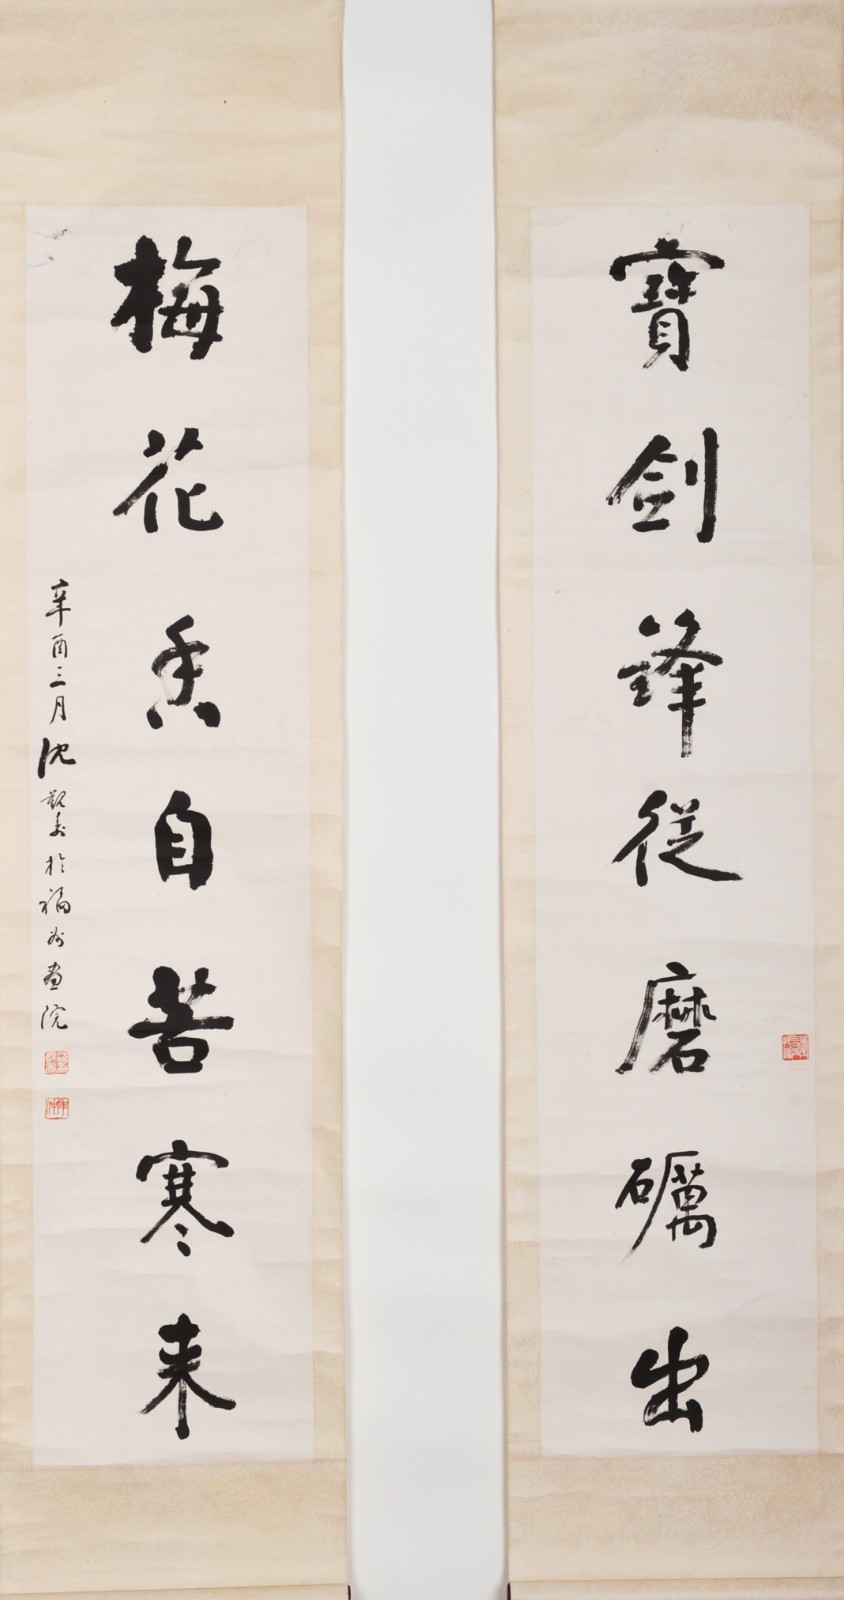 寶劍鋒從磨礪出
梅花香自苦寒来
辛酉三月沈觐寿於福州画院